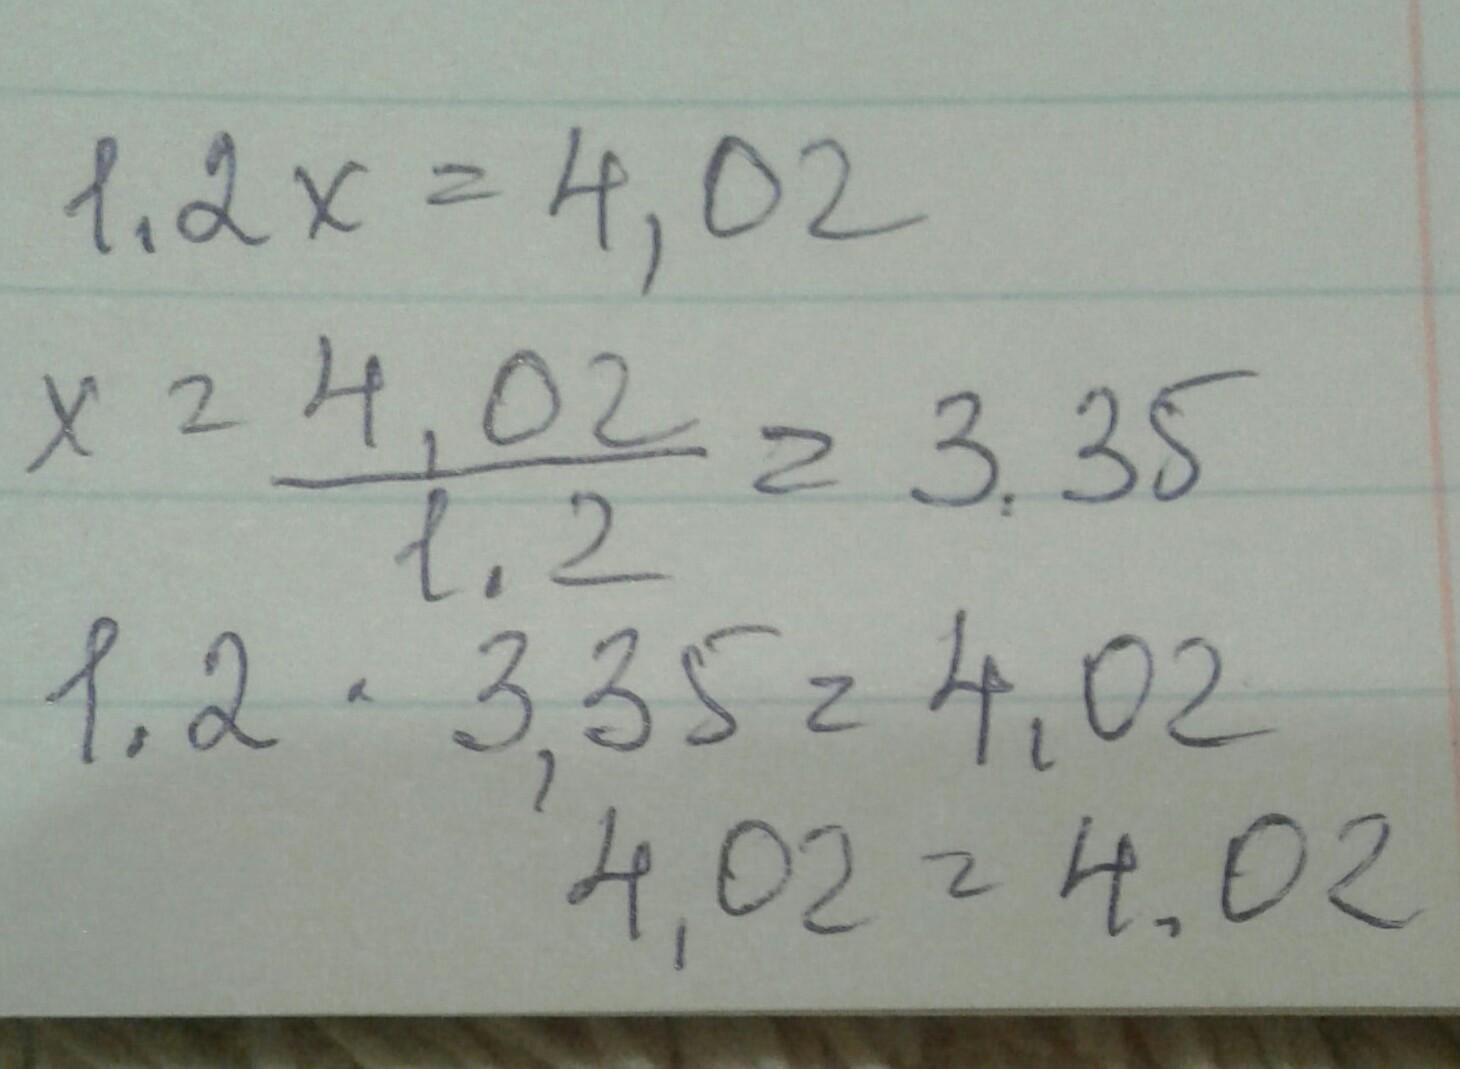 1.2x = 4,02
x = 4,02/1.2 = 3.35
1.2 · 3,35 = 4,02
4,02 = 4,02